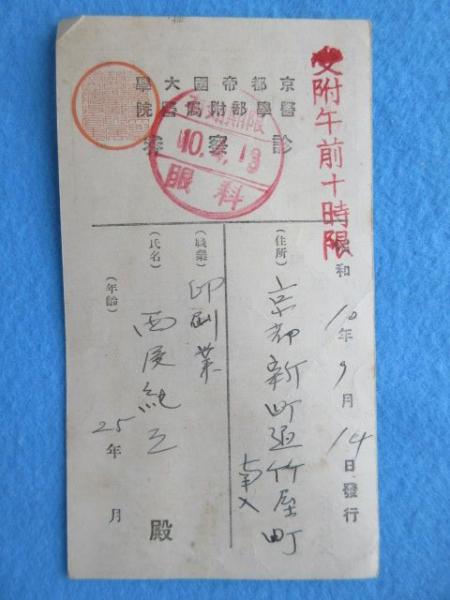 京都帝國大學
醫學部附屬醫院
診察券
期限
眼科
受附午前十時限
昭和10年9月14日發行
(住所) 京都新町通竹屋町
南入
(職業) 印刷業
(氏名) 西尾純 殿
(年齡) 25年 月